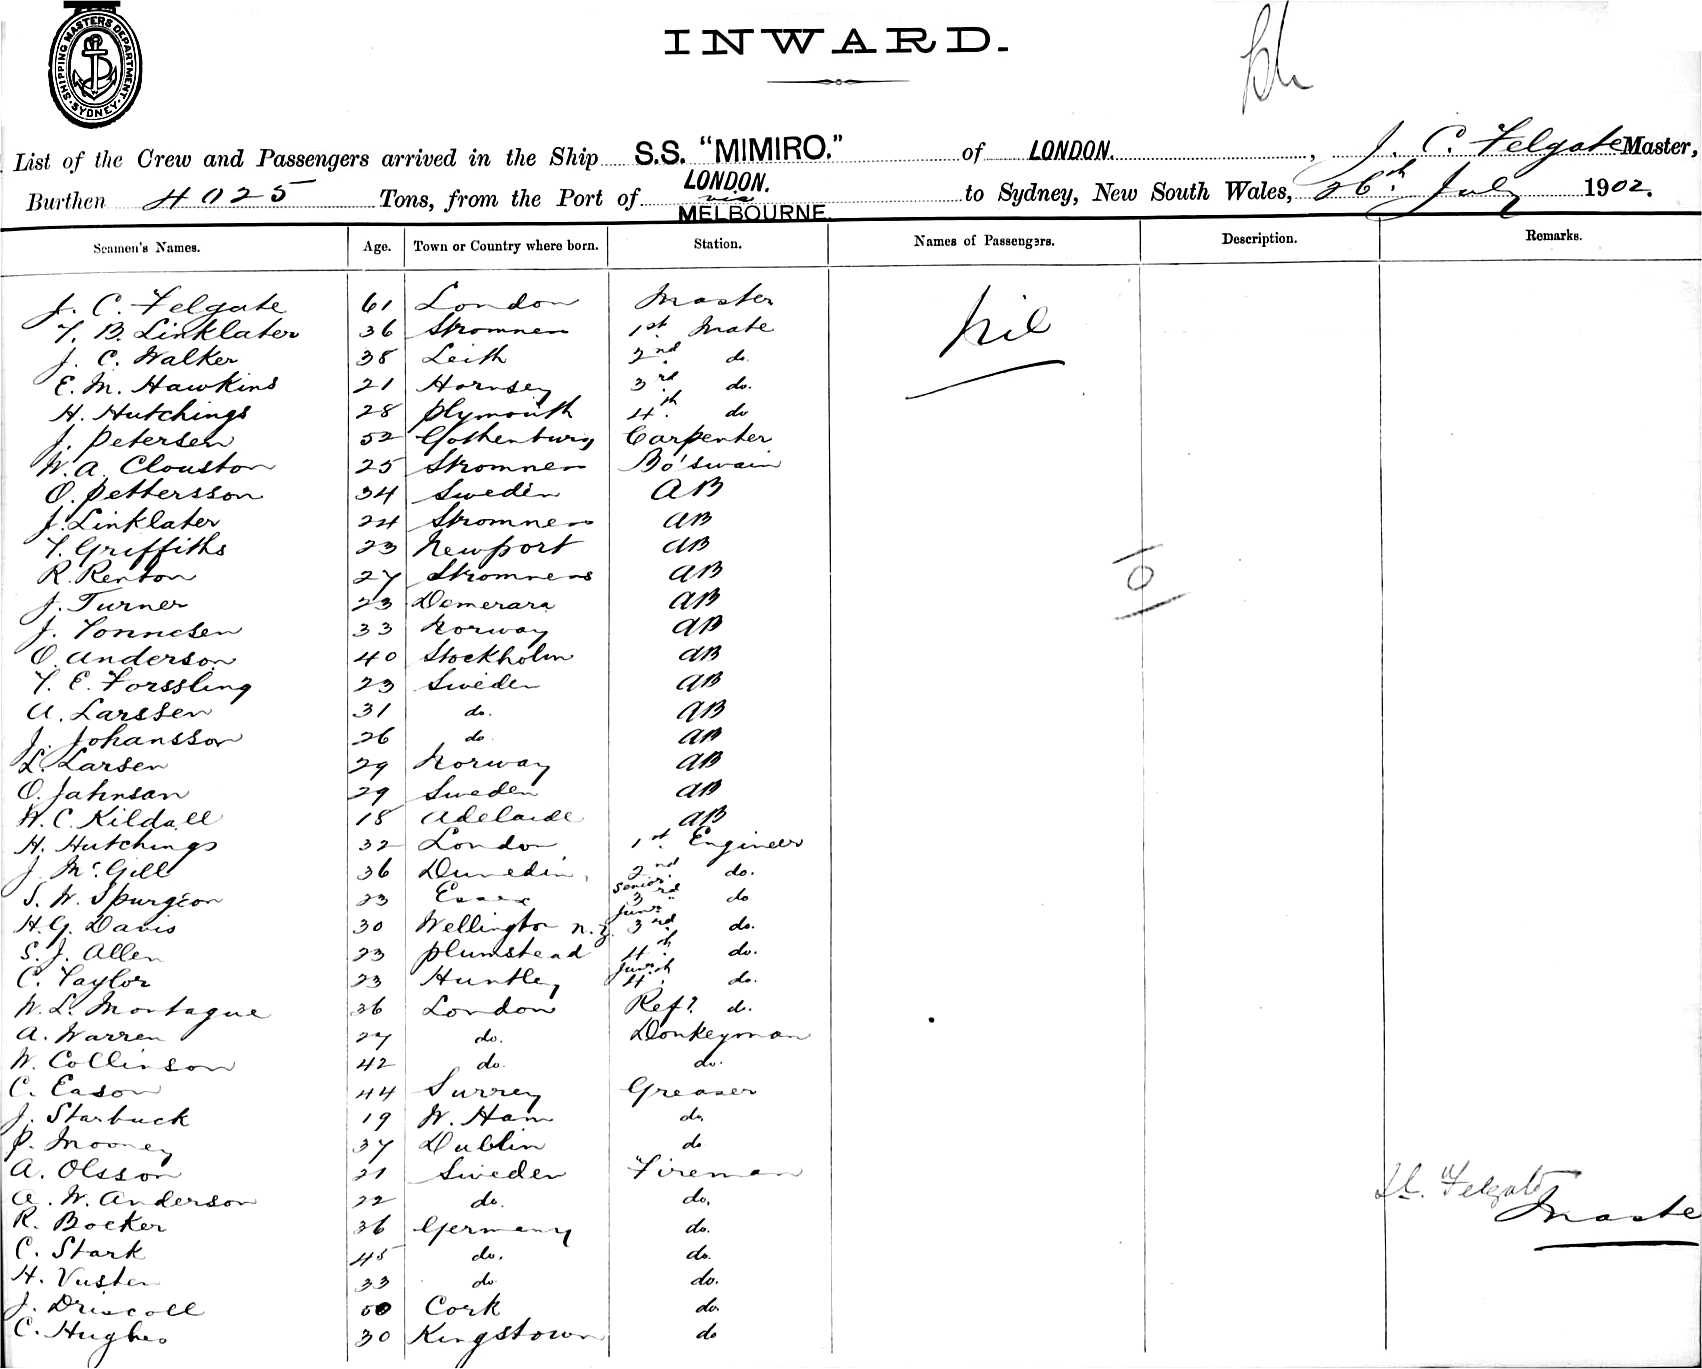 SHIPPING MASTERS DEPARTMENT. SYDNEY.
INWARD.
List of the Crew and Passengers arrived in the Ship S.S. "MIMIRO." of LONDON. , J. C. Felgate Master,
Burthen 4025 Tons, from the Port of LONDON. via MELBOURNE. to Sydney, New South Wales, 26th July 1902.
Seamen's Names. Age. Town or Country where born. Station. Names of Passengers. Description. Remarks.
J. C. Felgate 61 London Master nil
T. B. Linklater 36 Stromness 1st Mate
J. C. Walker 38 Leith 2nd do.
E. M. Hawkins 21 Hornsey 3rd do.
H. Hutchings 28 Plymouth 4th do
J. Petersen 52 Gothenburg Carpenter
W. A. Clouston 25 Stromness Bo'swain
O. Pettersson 34 Sweden AB
J. Linklater 24 Stromness AB
T. Griffiths 23 Newport AB
R. Renton 27 Stromness AB
J. Turner 23 Demerara AB
J. Tonnesen 33 Norway AB
O. Anderson 40 Stockholm AB
T. E. Forssling 23 Sweden AB
A. Larssen 31 do. AB
J. Johansson 26 do. AB
L. Larsen 29 Norway AB
O. Jahnsan 29 Sweden AB
W. C. Kildall 18 Adelaide AB
H. Hutchings 32 London 1st Engineer
J. McGill 36 Dunedin, 2nd do.
S. W. Spurgeon 23 Essex Senior 3rd do
H. G. Davis 30 Wellington N.Z. Junr 3rd do.
S. J. Allen 23 Plumstead 4th do.
C. Taylor 23 Huntley Junr 4th do.
W. L. Montague 36 London Refr. do.
A. Warren 27 do. Donkeyman
W. Collinson 42 do. do.
C. Eason 44 Surrey Greaser
J. Starbuck 19 W. Ham do.
P. Mooney 37 Dublin do
A. Olsson 21 Sweden Fireman
A. W. Anderson 22 do. do.
R. Bocker 36 Germany do.
C. Stark 45 do. do.
H. Vusten 33 do do.
J. Driscoll 50 Cork do.
C. Hughes 30 Kingstown do
Felgate
Master